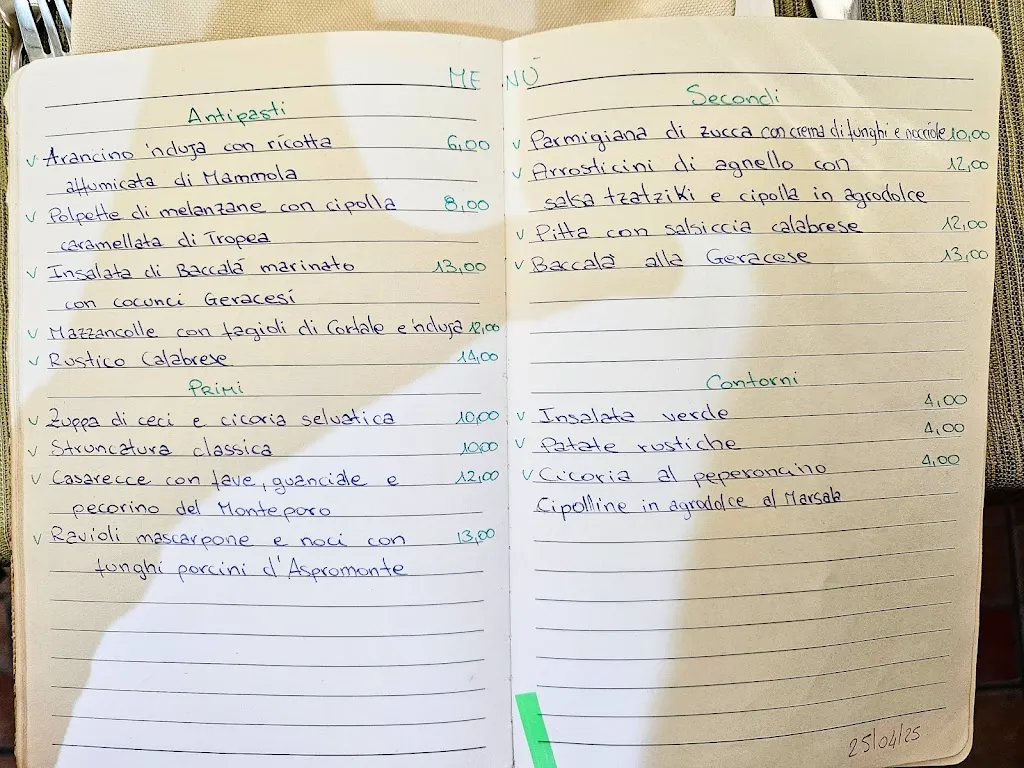 MENÙ
Antipasti
v Arancino 'nduja con ricotta 6,00
affumicata di Mammola
v Polpette di melanzane con cipolla 8,00
caramellata di Tropea
v Insalata di Baccalà marinato 13,00
con cocunci Geracesi
v Mazzancolle con fagioli di Cortale e 'nduja 12,00
v Rustico Calabrese 14,00
Primi
v Zuppa di ceci e cicoria selvatica 10,00
v Struncatura classica 10,00
v Casarecce con fave, guanciale e 12,00
pecorino del Monteporo
v Ravioli mascarpone e noci con 13,00
funghi porcini d'Aspromonte
Secondi
v Parmigiana di zucca con crema di funghi e nocciole 10,00
v Arrosticini di agnello con 12,00
salsa tzatziki e cipolla in agrodolce
v Pitta con salsiccia calabrese 12,00
v Baccalà alla Geracese 13,00
Contorni
v Insalata verde 4,00
v Patate rustiche 4,00
v Cicoria al peperoncino 4,00
Cipolline in agrodolce al Marsala
25/04/25